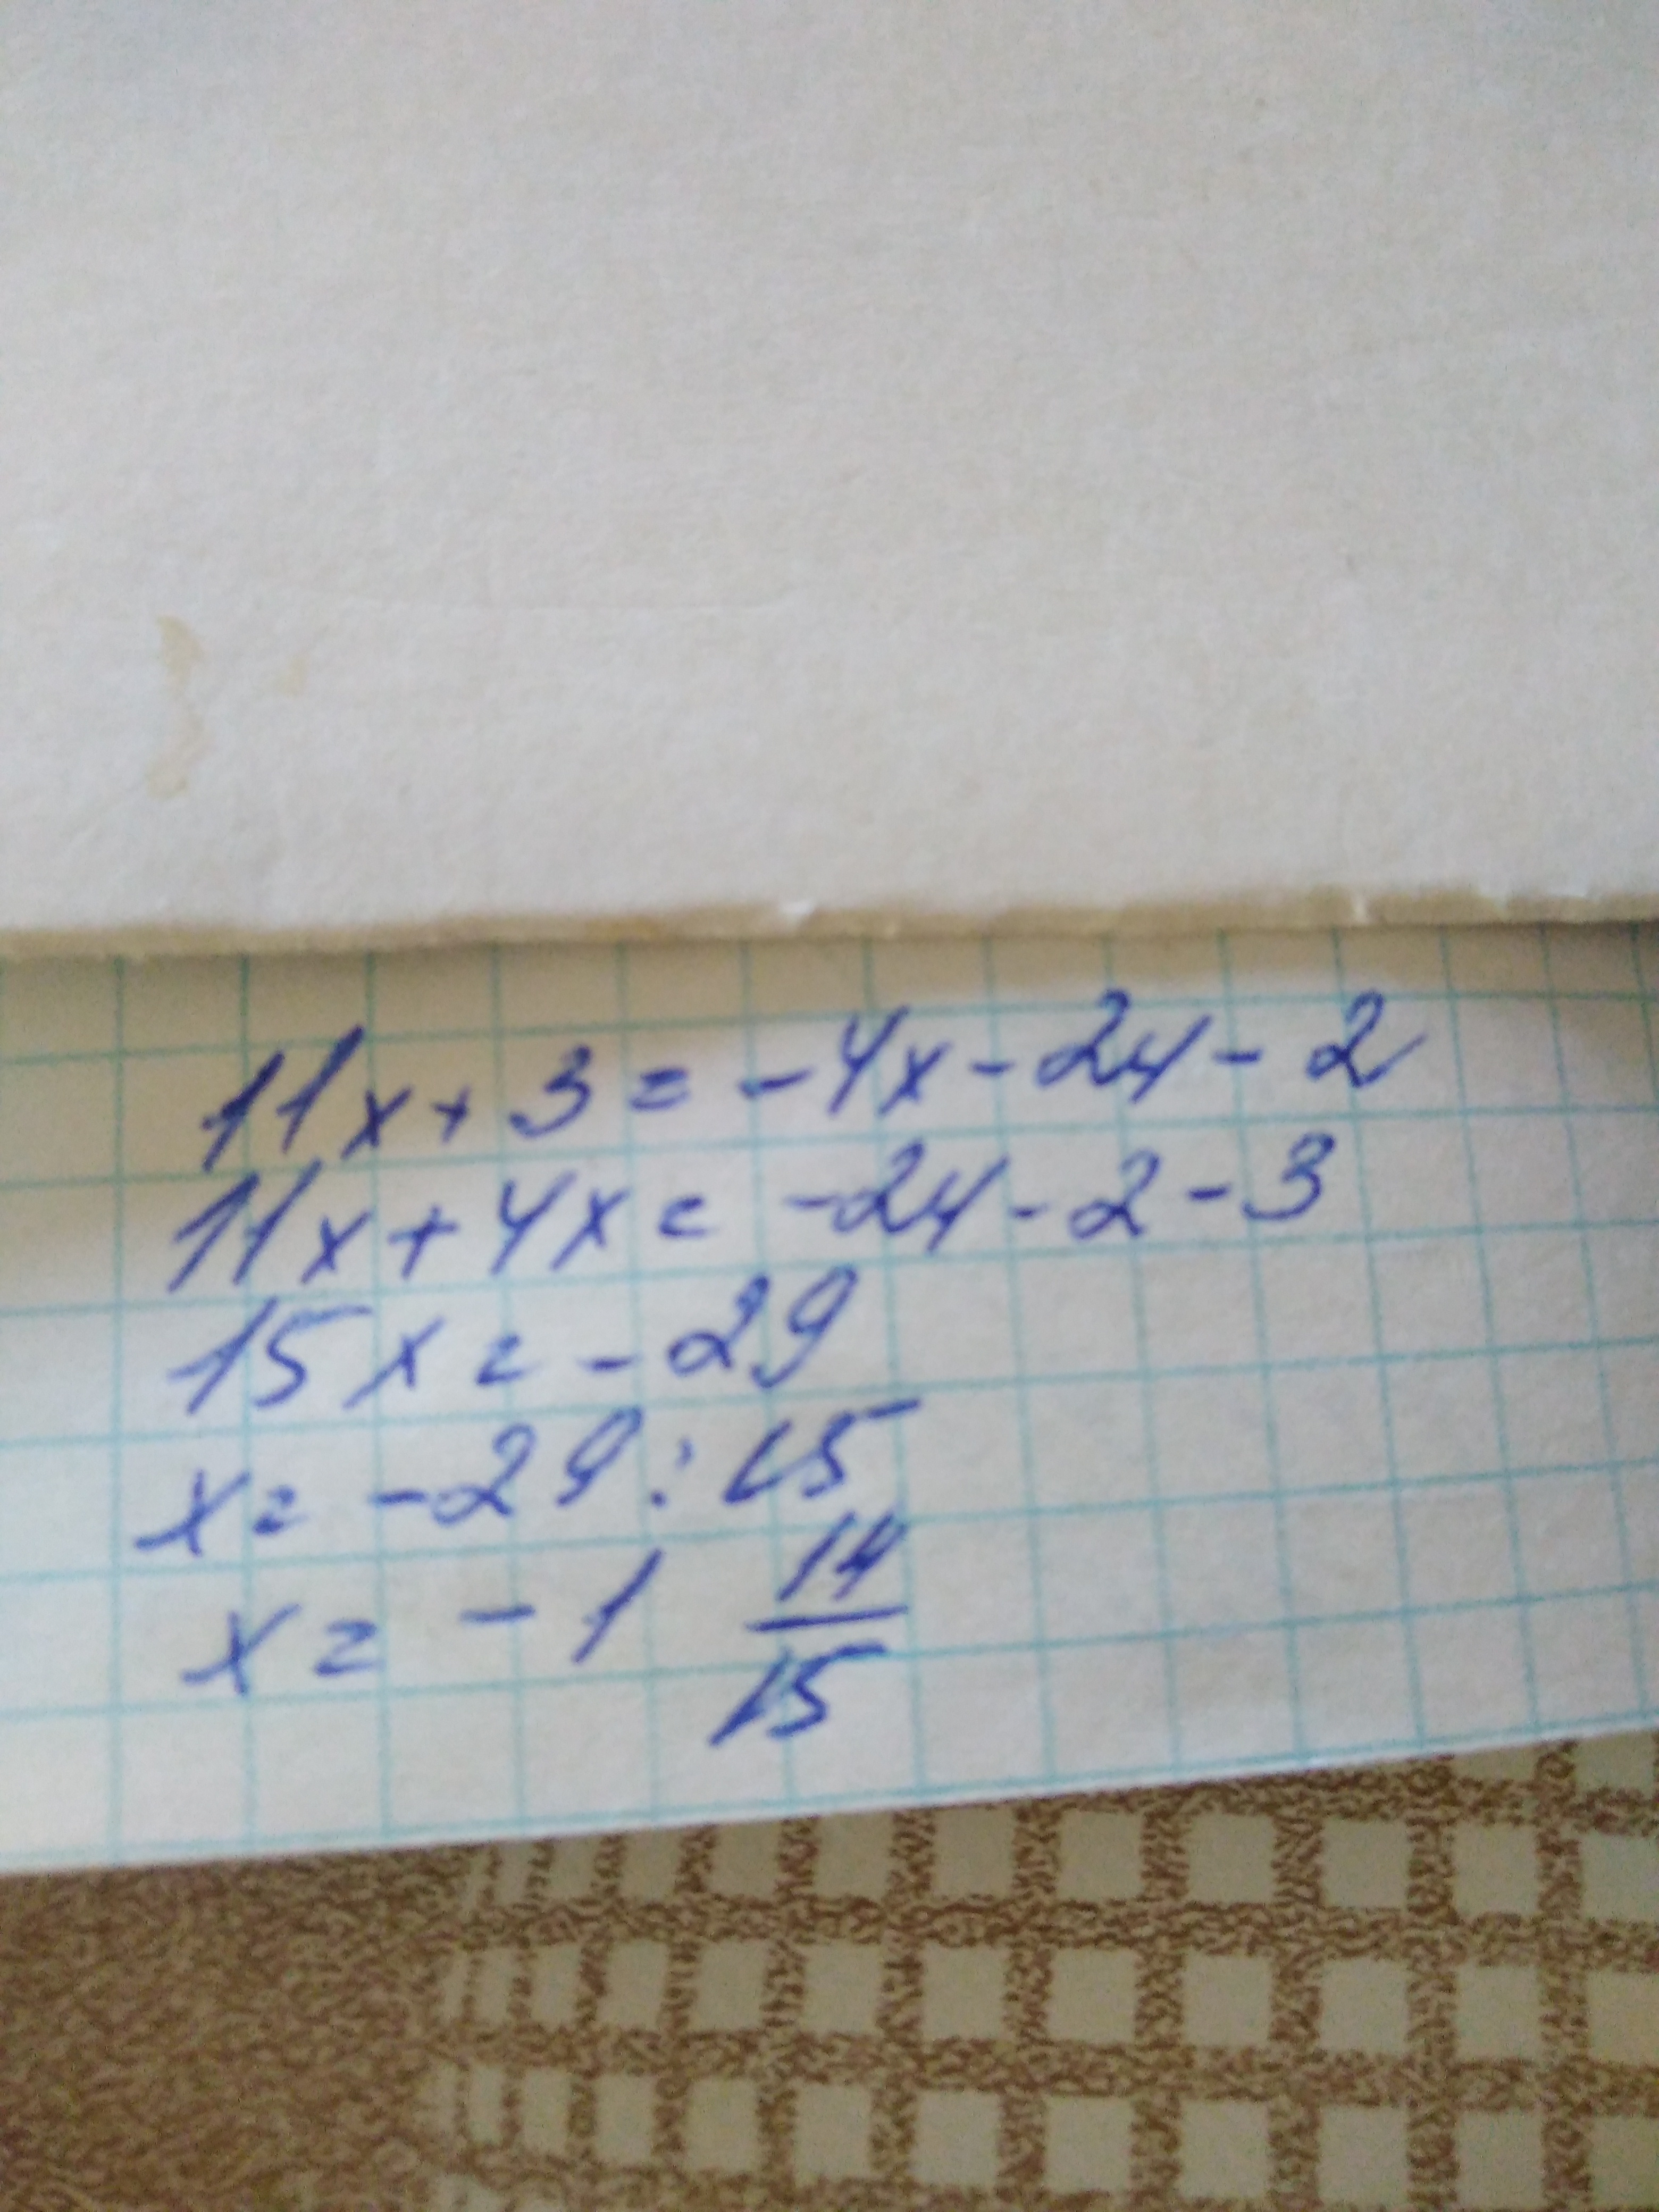 11x + 3 = -4x - 24 - 2
11x + 4x = -24 - 2 - 3
15x = -29
x = -29 : 15
x = -1 14/15